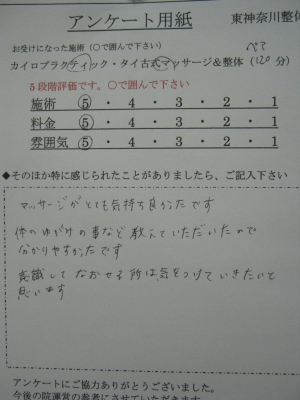 アンケート用紙
東神奈川整体
お受けになった施術（○で囲んで下さい）
ペア
カイロプラクティック・タイ古式マッサージ＆整体（120分）
５段階評価です。○で囲んで下さい。
施術 5 ・ 4 ・ 3 ・ 2 ・ 1
料金 5 ・ 4 ・ 3 ・ 2 ・ 1
雰囲気 5 ・ 4 ・ 3 ・ 2 ・ 1
◆そのほか特に感じられたことがありましたら、ご記入下さい
マッサージがとても気持ち良かたです
体のゆがみの事など教えていただいたので
分かりやすかたです
意識してなおせる所は気をつけていきたいと
思います
アンケートにご協力ありがとうございました。
今後の院運営の参考にさせていただきます